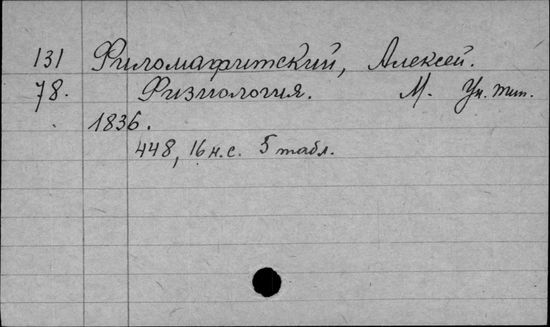 131 Филомафитский, Алексей.
78. Физиология. М. Ун. тип.
1836.
448, 16 н.с. 5 табл.